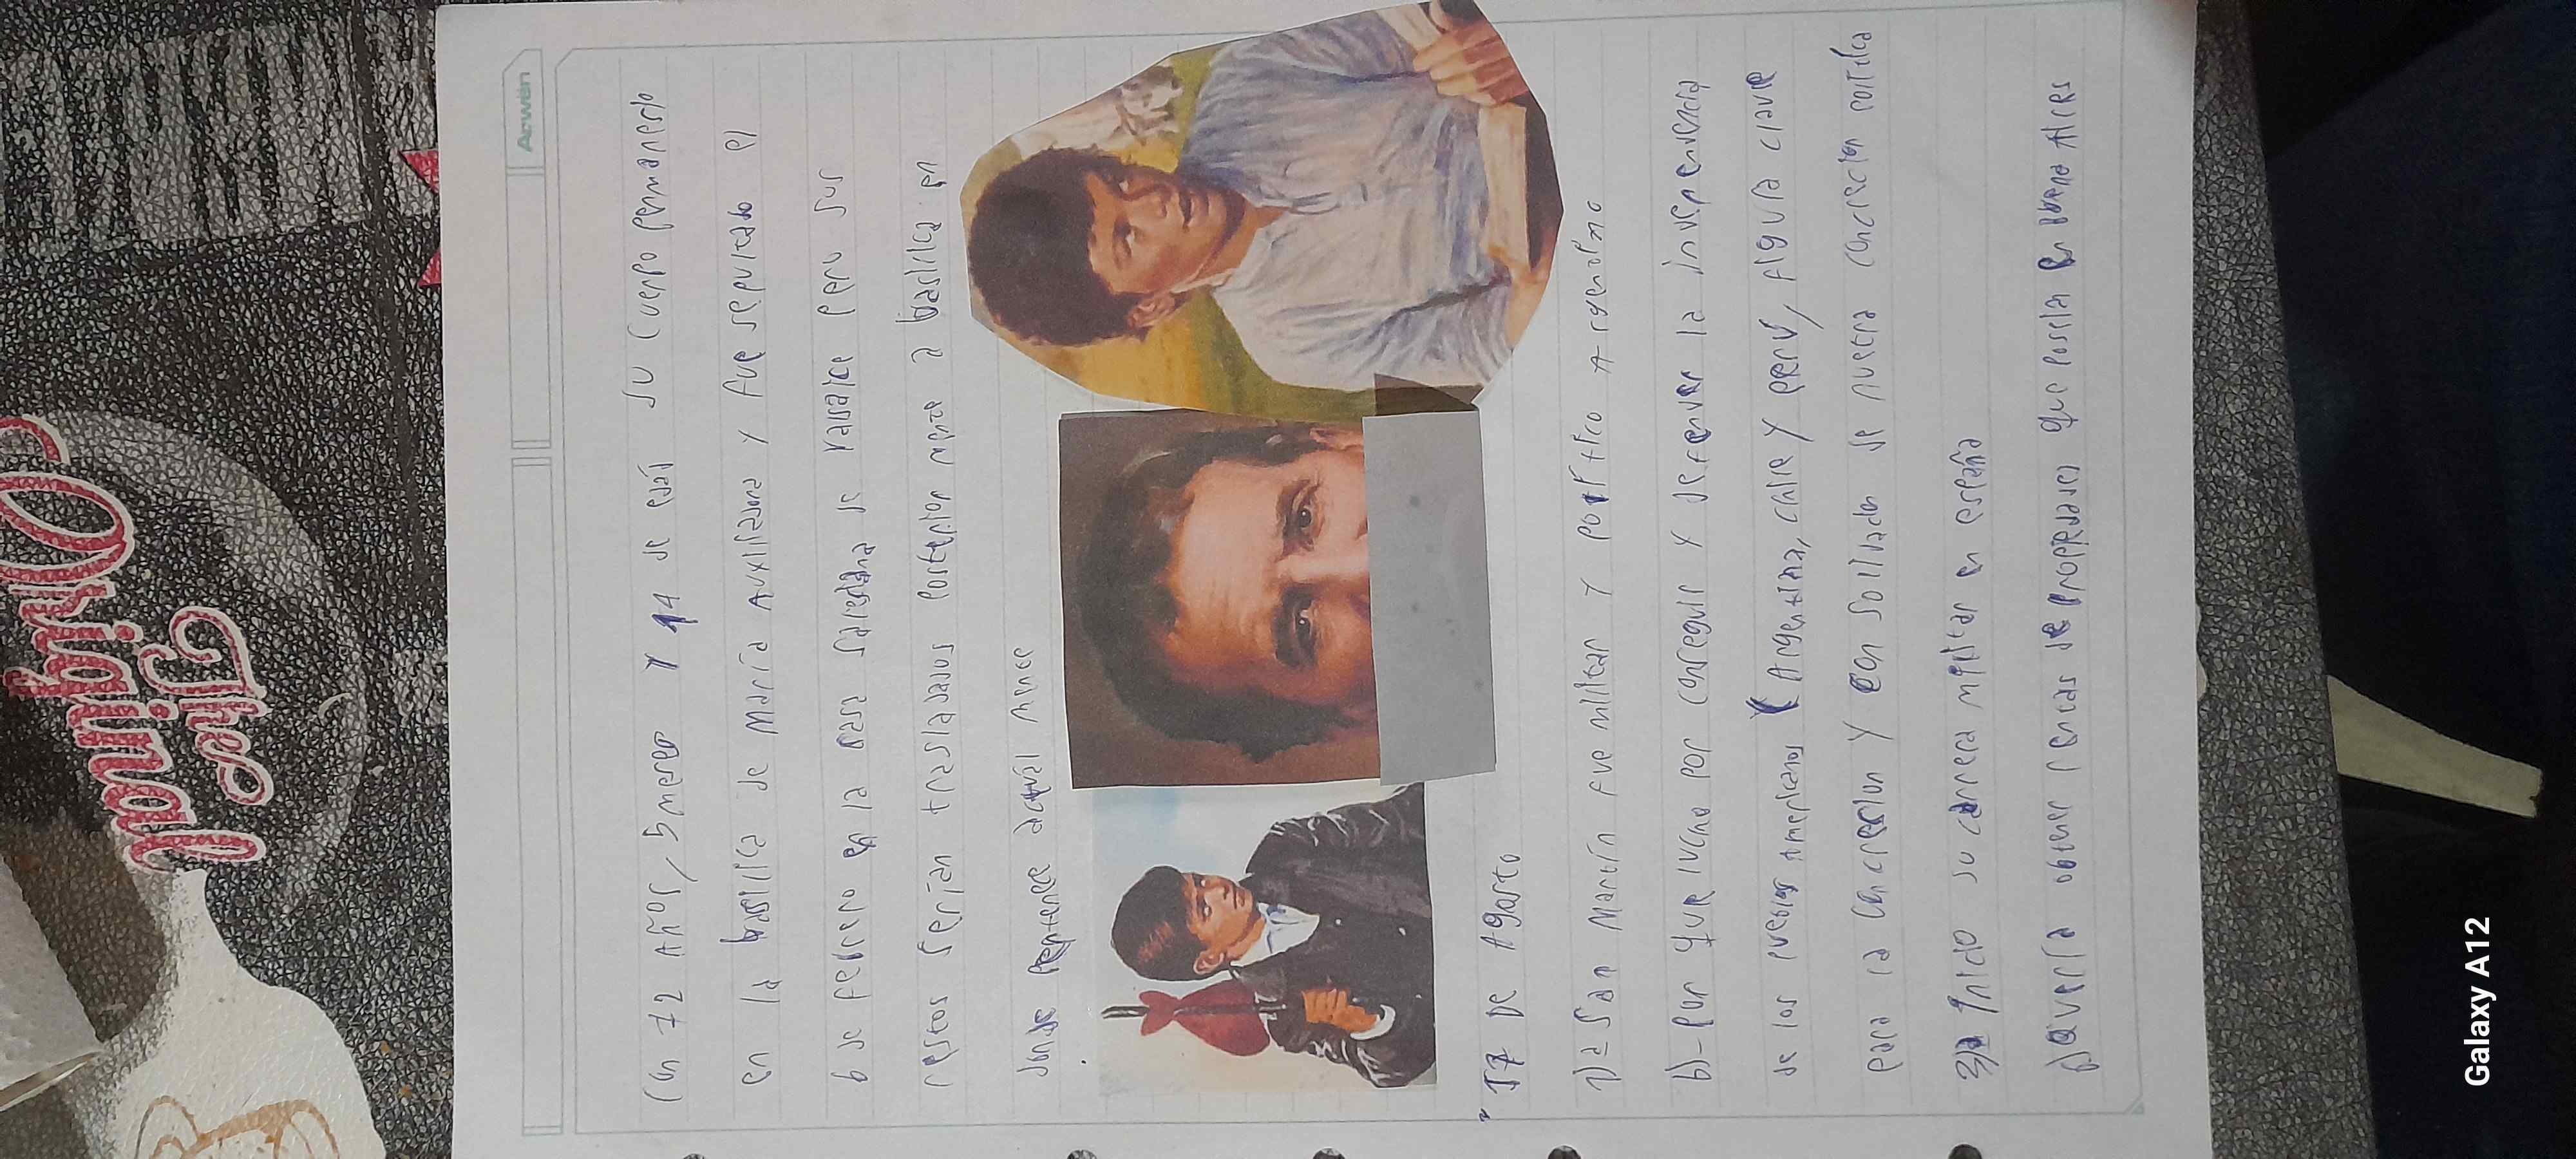 Arwen
Con 72 Años, 5 meses y 14 de edad su cuerpo permanesio
en la basilica de María Auxiliadora y fue sepultado el
6 de febrero en la casa salesiana de Valsalice pero sus
restos serían trasladados posterior mente a basilica en
donde permance actual mence
17 De Agosto
1)a San Martín fue militar y político Argentino
b)- Por que lucho por conseguir y defender la independencia
de los pueblos Americanos (Argentina, chile y perú, figura clave
para la concrecion y con solidacion de nuestra concrecion politica
3)a Inicio su carrera militar en españa
b) quería obtener rentas de propiedades que poseian en buena Aires
The
Original
Galaxy A12